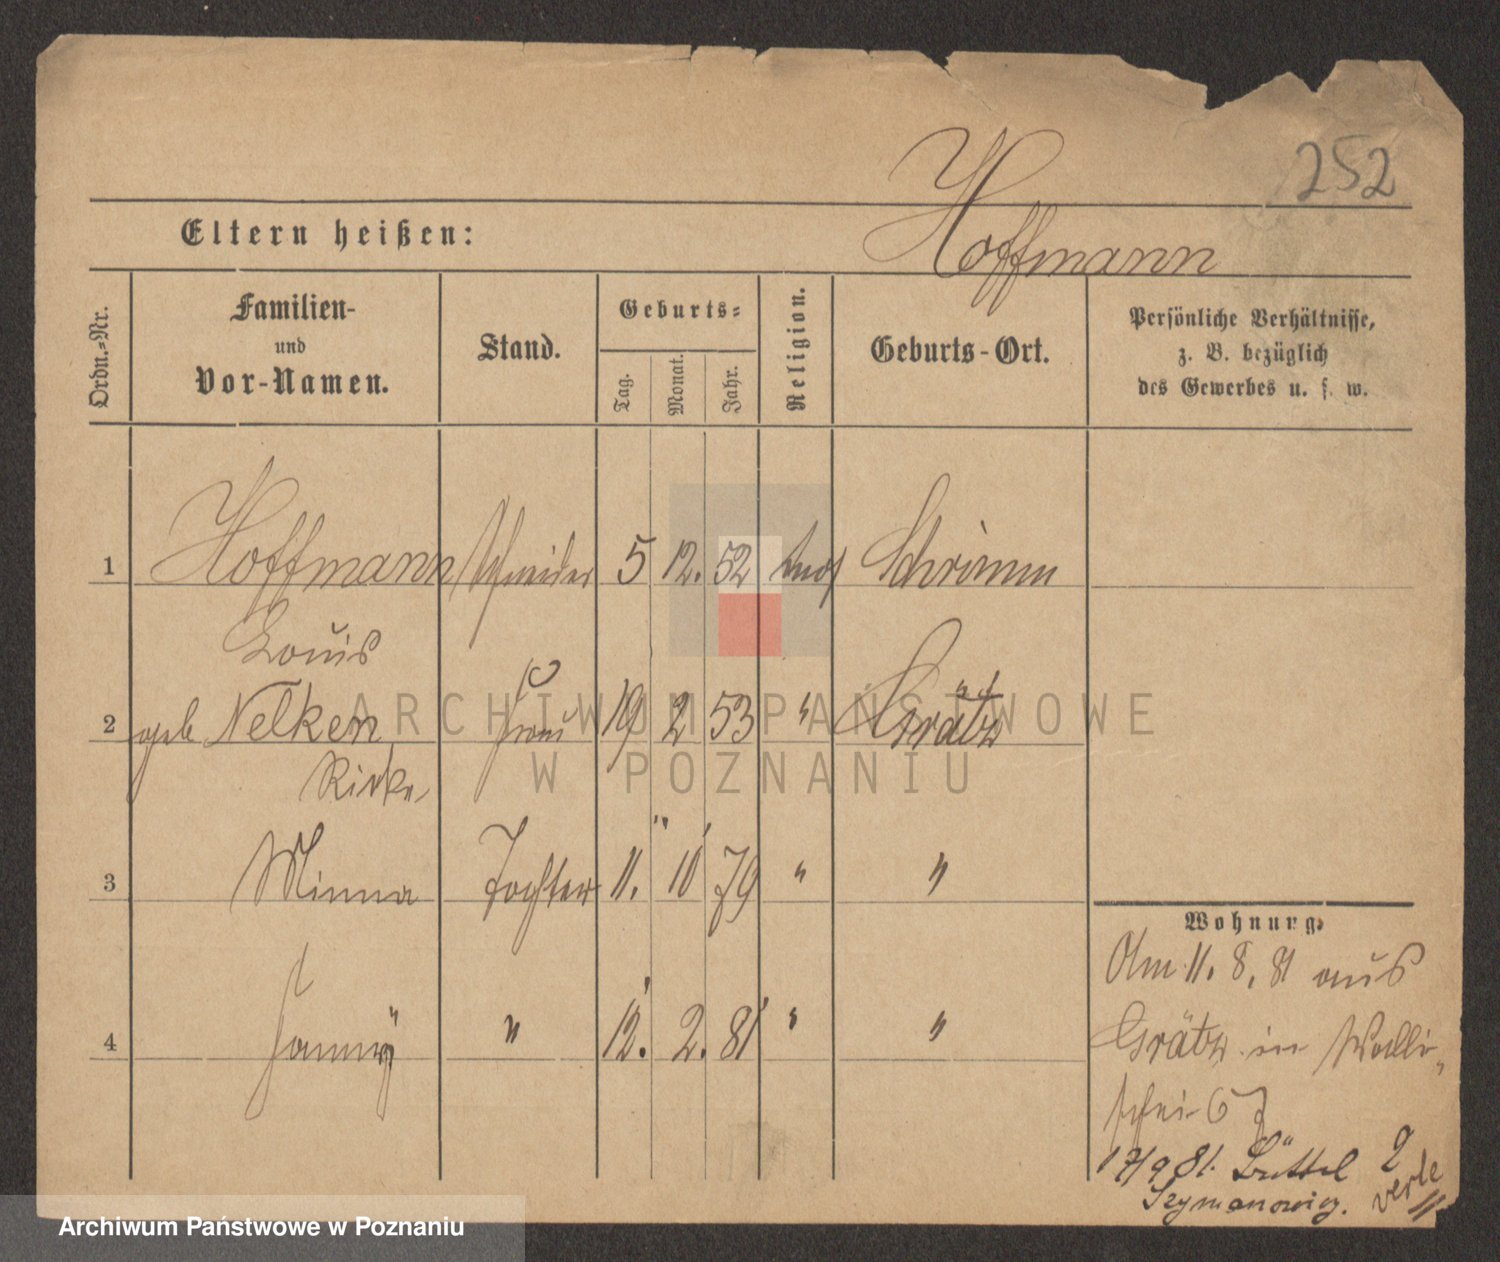 252
Eltern heißen: Hoffmann
Ordn.=Nr.
Familien-
und
Vor-Namen.
Stand.
Geburts=
Tag.
Monat.
Jahr.
Religion.
Geburts-Ort.
Persönliche Verhältnisse,
z. B. bezüglich
des Gewerbes u. s. w.
1 Hoffmann Schneider 5 12. 52 mos Schrimm
Louis
2 geb Nelken Frau 19 2 53 " Grätz
Rieke
3 Minna Tochter 11. 10 79 " "
4 Fanny " 12. 2. 81 " "
Wohnung.
Am 11. 8. 81 aus
Grätz in Walli-
schei 67
17/9 81. Büttel 2
Szymanowicz.
ARCHIWUM PAŃSTWOWE
W POZNANIU
Archiwum Państwowe w Poznaniu